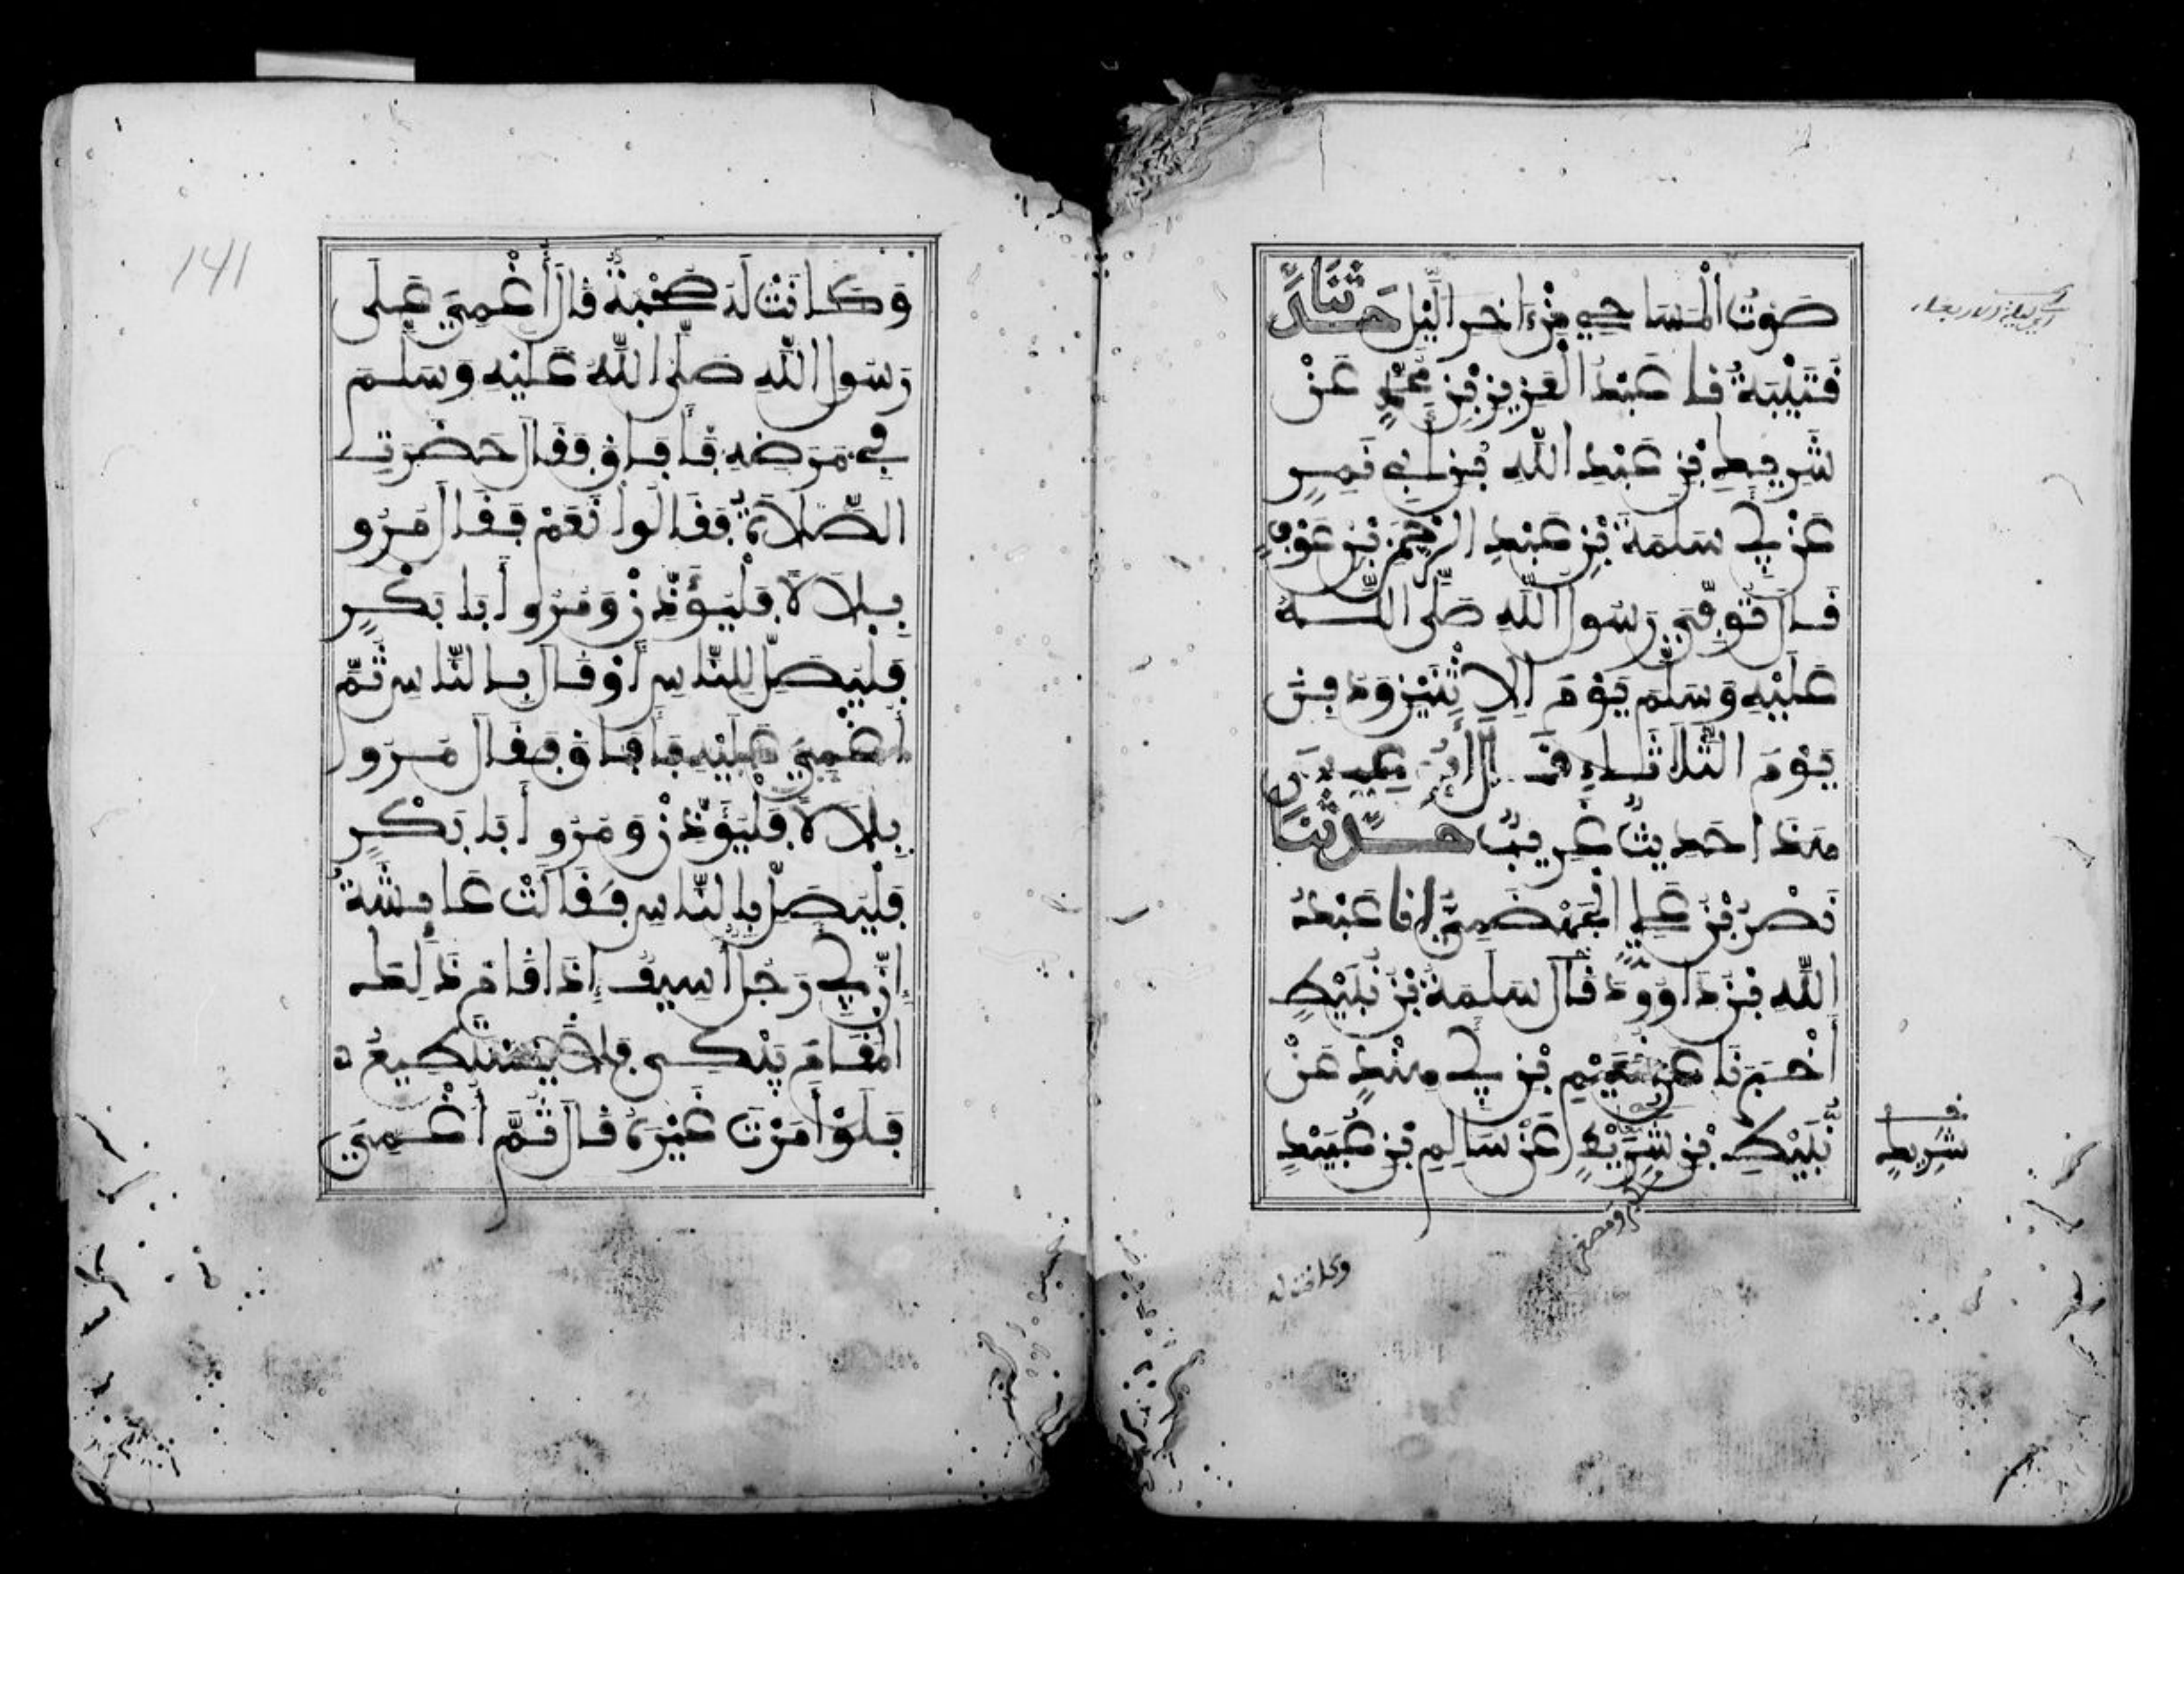 صَوْتُ الْمَسَاحِي مِنْ ءَاخَرِ الَّيْلِ حَدَّثَنَا
قُتَيْبَةُ نا عَبْدُ الْعَزِيزِ بْنُ مُحَمَّدٍ عَنْ
شَرِيطِ بْنِ عَبْدِ اللَّهِ بْنِ أَبِي نَمِرٍ
عَنْ أَبِي سَلَمَةَ بْنِ عَبْدِ الرَّحْمَنِ بْنِ عَوْفٍ
قَالَ تُوُفِّيَ رَسُولُ اللَّهِ صَلَّى اللَّهُ
عَلَيْهِ وَسَلَّمَ يَوْمَ الِاثْنَيْنِ وَدُفِنَ
يَوْمَ الثَّلَاثَاءِ قَالَ أَبُو عِيسَى
هَذَا حَدِيثٌ غَرِيبٌ حَدَّثَنَا
نَصْرُ بْنُ عَلِيٍّ الْجَهْضَمِيُّ انا عَبْدُ
اللَّهِ بْنُ دَاوُودَ قَالَ سَلَمَةُ بْنُ نُبَيْطٍ
أَخْبَرَنَا عَنْ نُعَيْمِ بْنِ أَبِي هِنْدٍ عَنْ
نُبَيْطِ بْنِ شَرِيطٍ عَنْ سَالِمِ بْنِ عُبَيْدٍ
شَرِيطٍ
وكانت له
141
وَكَانَتْ لَهُ صُحْبَةٌ قَالَ أُغْمِيَ عَلَى
رَسُولِ اللَّهِ صَلَّى اللَّهُ عَلَيْهِ وَسَلَّمَ
فِي مَرَضِهِ فَأَفَاقَ فَقَالَ حَضَرَتِ
الصَّلَاةُ فَقَالُوا نَعَمْ فَقَالَ مُرُو
بِلَالاً فَلْيُؤَذِّنْ وَمُرُوا أَبَا بَكْرٍ
فَلْيُصَلِّ لِلنَّاسِ أَوْ قَالَ بِالنَّاسِ ثُمَّ
أُغْمِيَ عَلَيْهِ فَأَفَاقَ فَقَالَ مُرُوا
بِلَالاً فَلْيُؤَذِّنْ وَمُرُوا أَبَا بَكْرٍ
فَلْيُصَلِّ بِالنَّاسِ فَقَالَتْ عَائِشَةُ
إِنَّ أَبِي رَجُلٌ أَسِيفٌ إِذَا قَامَ ذَلِكَ
الْمَقَامَ يَبْكِي فَلَا يَسْتَطِيعُ
فَلَوْ أَمَرْتَ غَيْرَهُ قَالَ ثُمَّ أُغْمِيَ